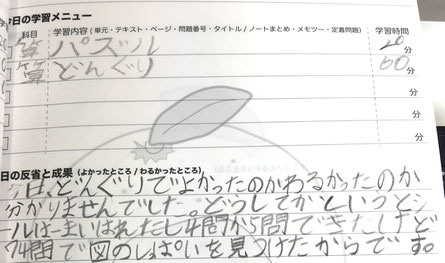 今日の学習メニュー
科目 学習内容（単元・テキスト・ページ・問題番号・タイトル / ノートまとめ・メモツー・定着問題） 学習時間
算 パズル 20分
算 どんぐり 60分
分
分
分
今日の反省と成果（よかったところ / わるかったところ）
今日、どんぐりでよかったのかわるかったのか
分かりませんでした。どうしてかというとシ
ールは だし4問から5問できたけど
74問で図のしっぱいを見つけたからです。